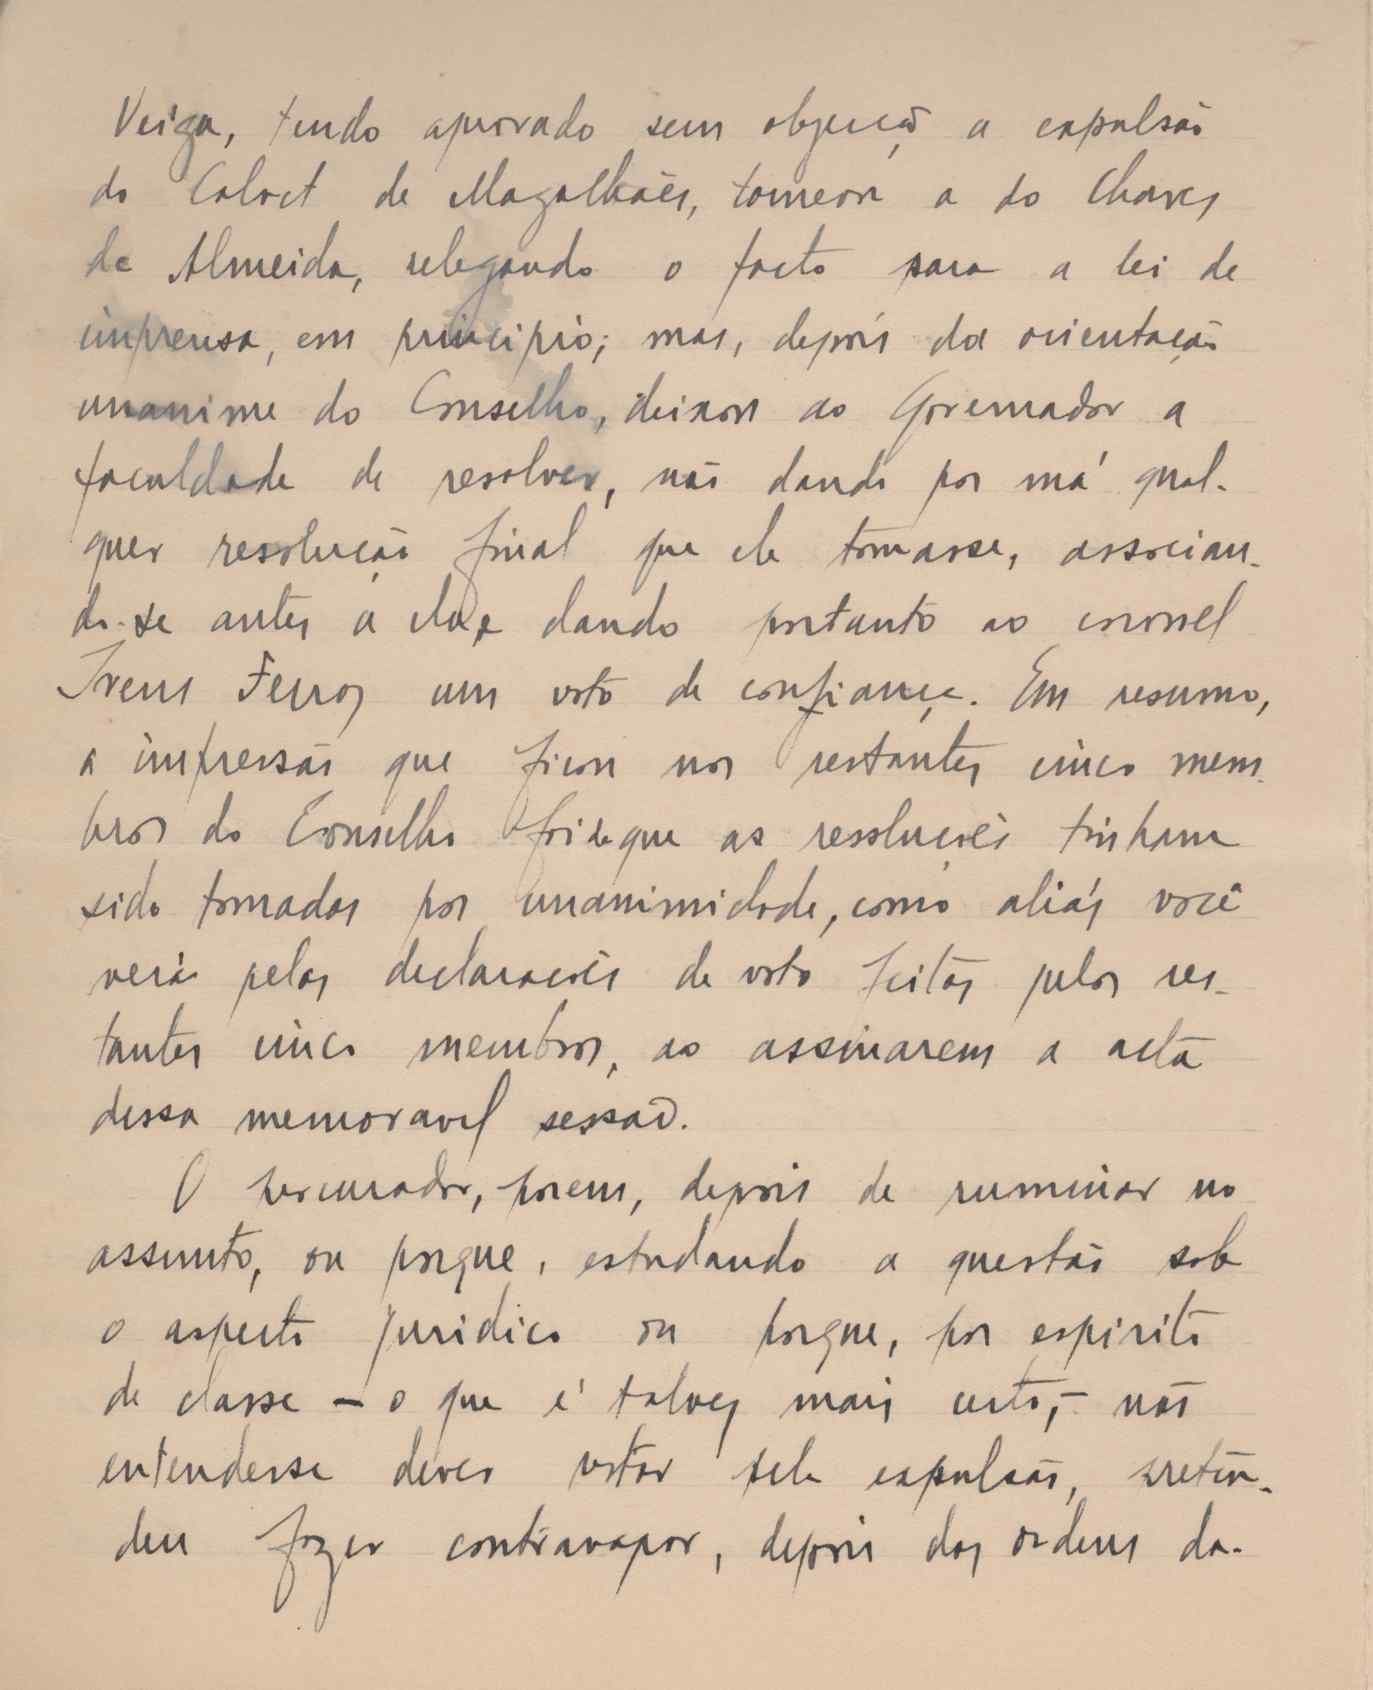 Veiga, tendo aprovado sem objecção a expulsão
do Colvet de Magalhães, torneou a do Chaves
de Almeida, relegando o facto para a lei de
imprensa, em principio; mas, depois da orientação
unanime do Conselho, deixou ao Governador a
faculdade de resolver, não dando por má qual-
quer resolução final que ele tomasse, associan-
do-se antes a ela, e dando portanto ao coronel
Ferraz um voto de confiança. Em resumo,
a impressão que ficou nos restantes cinco mem-
bros do Conselho foi de que as resoluções tinham
sido tomadas por unanimidade, como aliás você
verá pelas declarações de voto feitas pelos res-
tantes cinco membros, ao assinarem a acta
dessa memoravel sessão.
O procurador, porem, depois de ruminar no
assunto, ou porque, estudando a questão sob
o aspecto juridico ou porque, por espirito
de classe – o que é talvez mais certo, – não
entendesse dever votar pela expulsão, preten-
deu fazer contravapor, depois das ordens da-